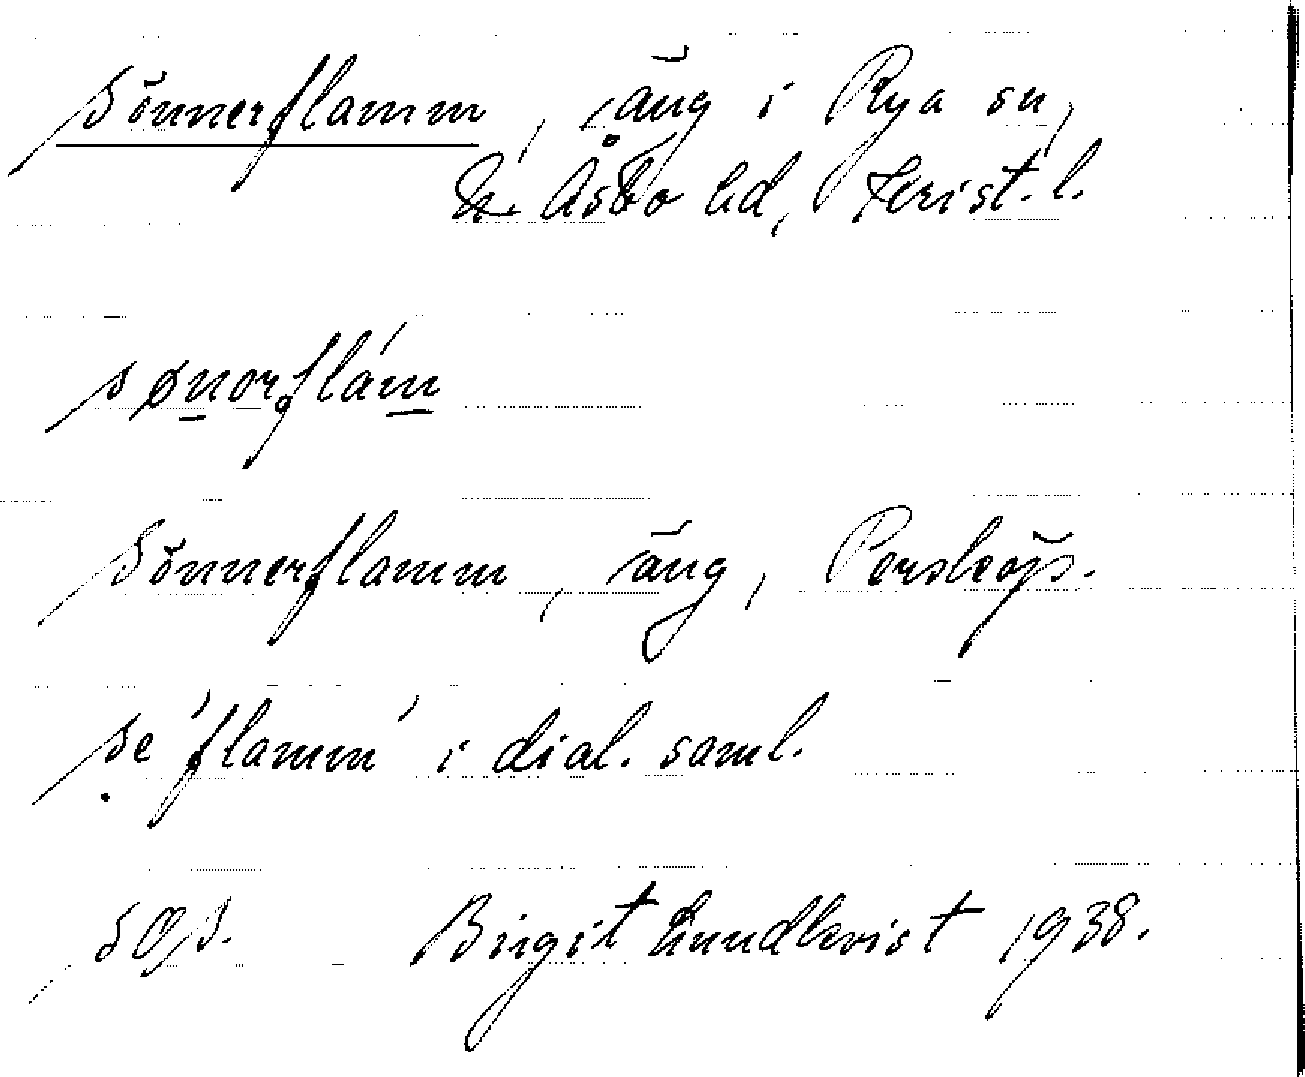 Sönnerflamm, äng i Rya sn,
N. Åsbo hd, Krist. l.
sønorflám
Sönnerflamm, äng, Persköps.
se 'flamm' i dial. saml.
SOS. Birgit Lundkvist 1938.